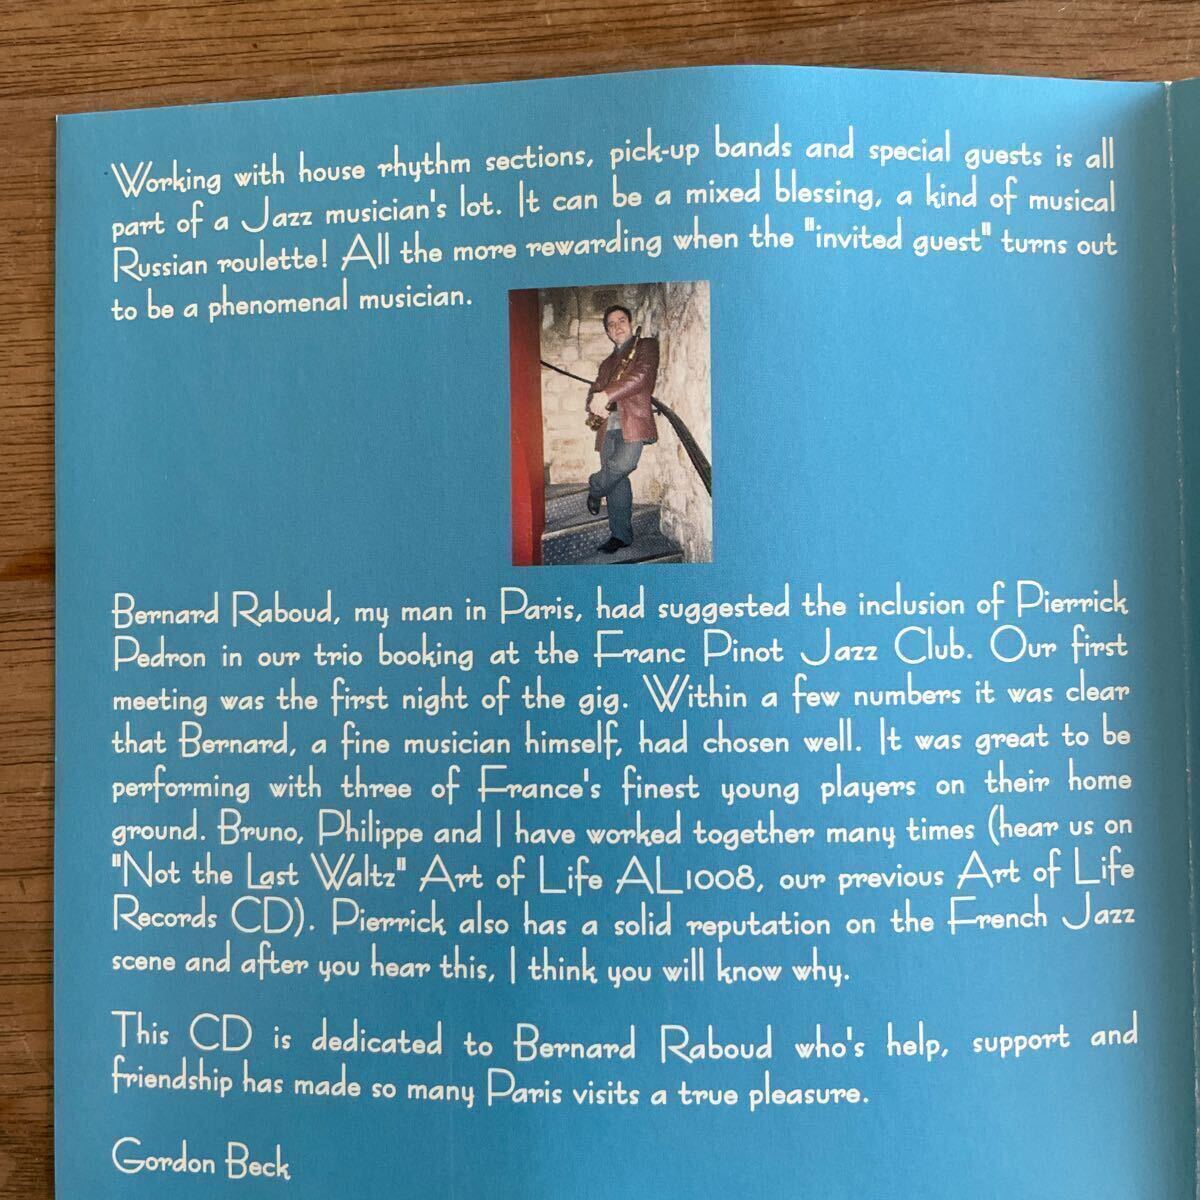 Working with house rhythm sections, pick-up bands and special guests is all
part of a Jazz musician's lot. It can be a mixed blessing, a kind of musical
Russian roulette! All the more rewarding when the "invited guest" turns out
to be a phenomenal musician.
Bernard Raboud, my man in Paris, had suggested the inclusion of Pierrick
Pedron in our trio booking at the Franc Pinot Jazz Club. Our first
meeting was the first night of the gig. Within a few numbers it was clear
that Bernard, a fine musician himself, had chosen well. It was great to be
performing with three of France's finest young players on their home
ground. Bruno, Philippe and I have worked together many times (hear us on
"Not the Last Waltz" Art of Life AL1008, our previous Art of Life
Records CD). Pierrick also has a solid reputation on the French Jazz
scene and after you hear this, I think you will know why.
This CD is dedicated to Bernard Raboud who's help, support and
friendship has made so many Paris visits a true pleasure.
Gordon Beck